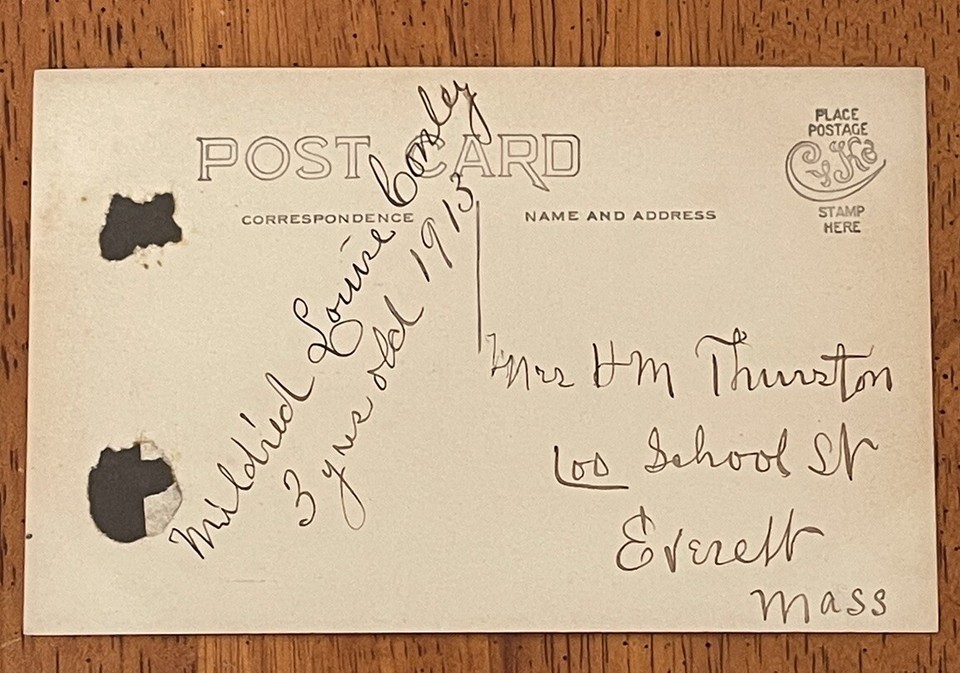 POST CARD
CORRESPONDENCE
NAME AND ADDRESS
PLACE
POSTAGE
STAMP
HERE
Mildred Louise Conley
3 yrs old 1913
Mrs HM Thurston
School St
Everett
Mass